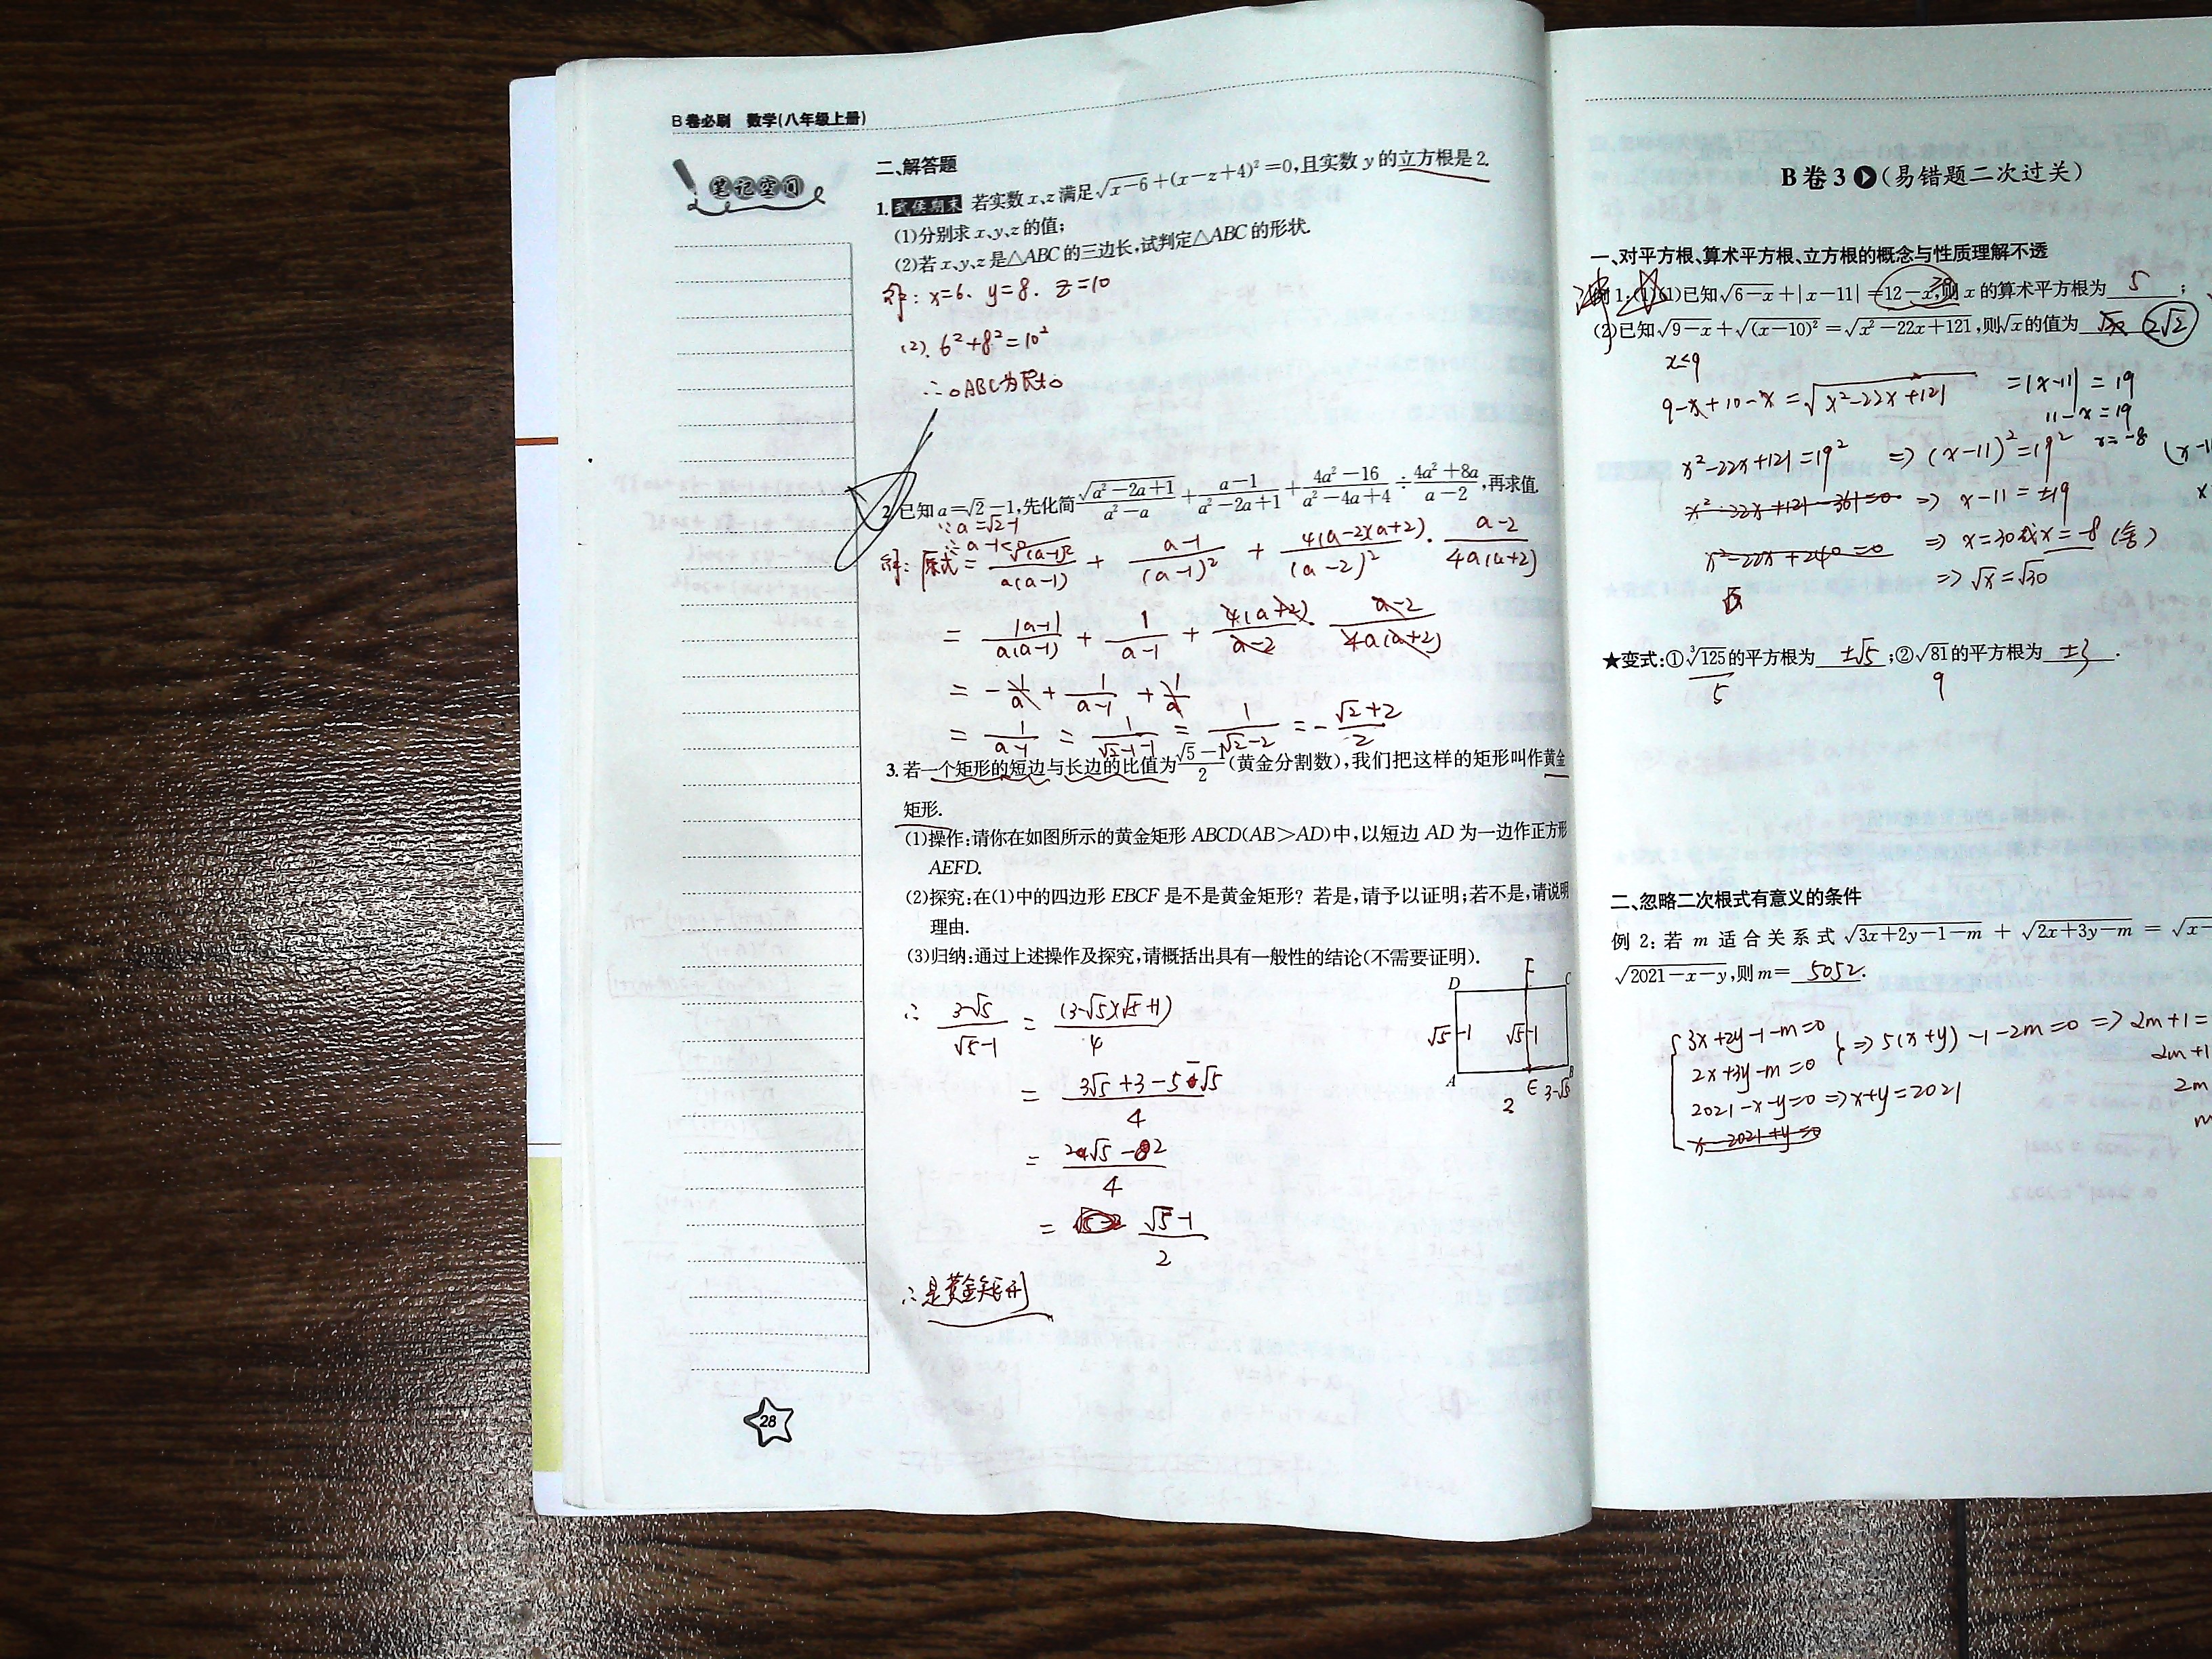 B卷必刷 数学(八年级上册)
笔记空间
二、解答题
1. 武侯期末 若实数 x、z 满足√(x-6)+(x-z+4)²=0,且实数 y 的立方根是 2.
(1)分别求 x、y、z 的值;
(2)若 x、y、z 是△ABC 的三边长,试判定△ABC 的形状.
解: x=6. y=8. z=10
(2). 6²+8²=10²
∴ △ABC为Rt△
2. 已知 a=√2-1,先化简 √(a²-2a+1)/(a²-a) + (a-1)/(a²-2a+1) + (4a²-16)/(a²-4a+4) ÷ (4a²+8a)/(a-2),再求值.
∵ a=√2-1
∴ a-1<0
解: 原式 = √(a-1)²/a(a-1) + (a-1)/(a-1)² + 4(a-2)(a+2)/(a-2)² · (a-2)/4a(a+2)
= |a-1|/a(a-1) + 1/(a-1) + 4(a+2)/(a-2) · (a-2)/4a(a+2)
= -1/a + 1/(a-1) + 1/a
= 1/(a-1) = 1/(√2-1-1) = 1/(√2-2) = -(√2+2)/2
3. 若一个矩形的短边与长边的比值为(√5-1)/2(黄金分割数),我们把这样的矩形叫作黄金
矩形.
(1)操作:请你在如图所示的黄金矩形 ABCD(AB>AD)中,以短边 AD 为一边作正方形
AEFD.
(2)探究:在(1)中的四边形 EBCF 是不是黄金矩形? 若是,请予以证明;若不是,请说明
理由.
(3)归纳:通过上述操作及探究,请概括出具有一般性的结论(不需要证明).
D F C
√5-1 √5-1
A E B
2 3-√5
∴ (3-√5)/(√5-1) = (3-√5)(√5+1)/4
= (3√5+3-5-√5)/4
= (2√5-2)/4
= (√5-1)/2
∴是黄金矩形
28
B 卷 3 (易错题二次过关)
一、对平方根、算术平方根、立方根的概念与性质理解不透
例 1:(1)已知√(6-x)+|x-11|=12-x,则 x 的算术平方根为 5 ;
(2)已知√(9-x)+√((x-10)²)=√(x²-22x+121),则√x的值为 2√2
x≤9
9-x+10-x=√(x²-22x+121) =|x-11| = 19
11-x=19
x=-8
x²-22x+121=19² => (x-11)²=19²
x²-22x+121-361=0 => x-11=±19
x²-22x+240=0 => x=30或x=-8 (舍)
=> √x=√30
★变式:①∛125的平方根为 ±√5 ;②√81的平方根为 ±3 .
5
9
二、忽略二次根式有意义的条件
例 2:若 m 适合关系式 √(3x+2y-1-m) + √(2x+3y-m) = √(x-
√(2021-x-y),则 m= 5052.
3x+2y-1-m=0
2x+3y-m=0 } => 5(x+y)-1-2m=0 => 2m+1=
2m+1
2021-x-y=0 => x+y=2021
2m
x-2021+y=0
m